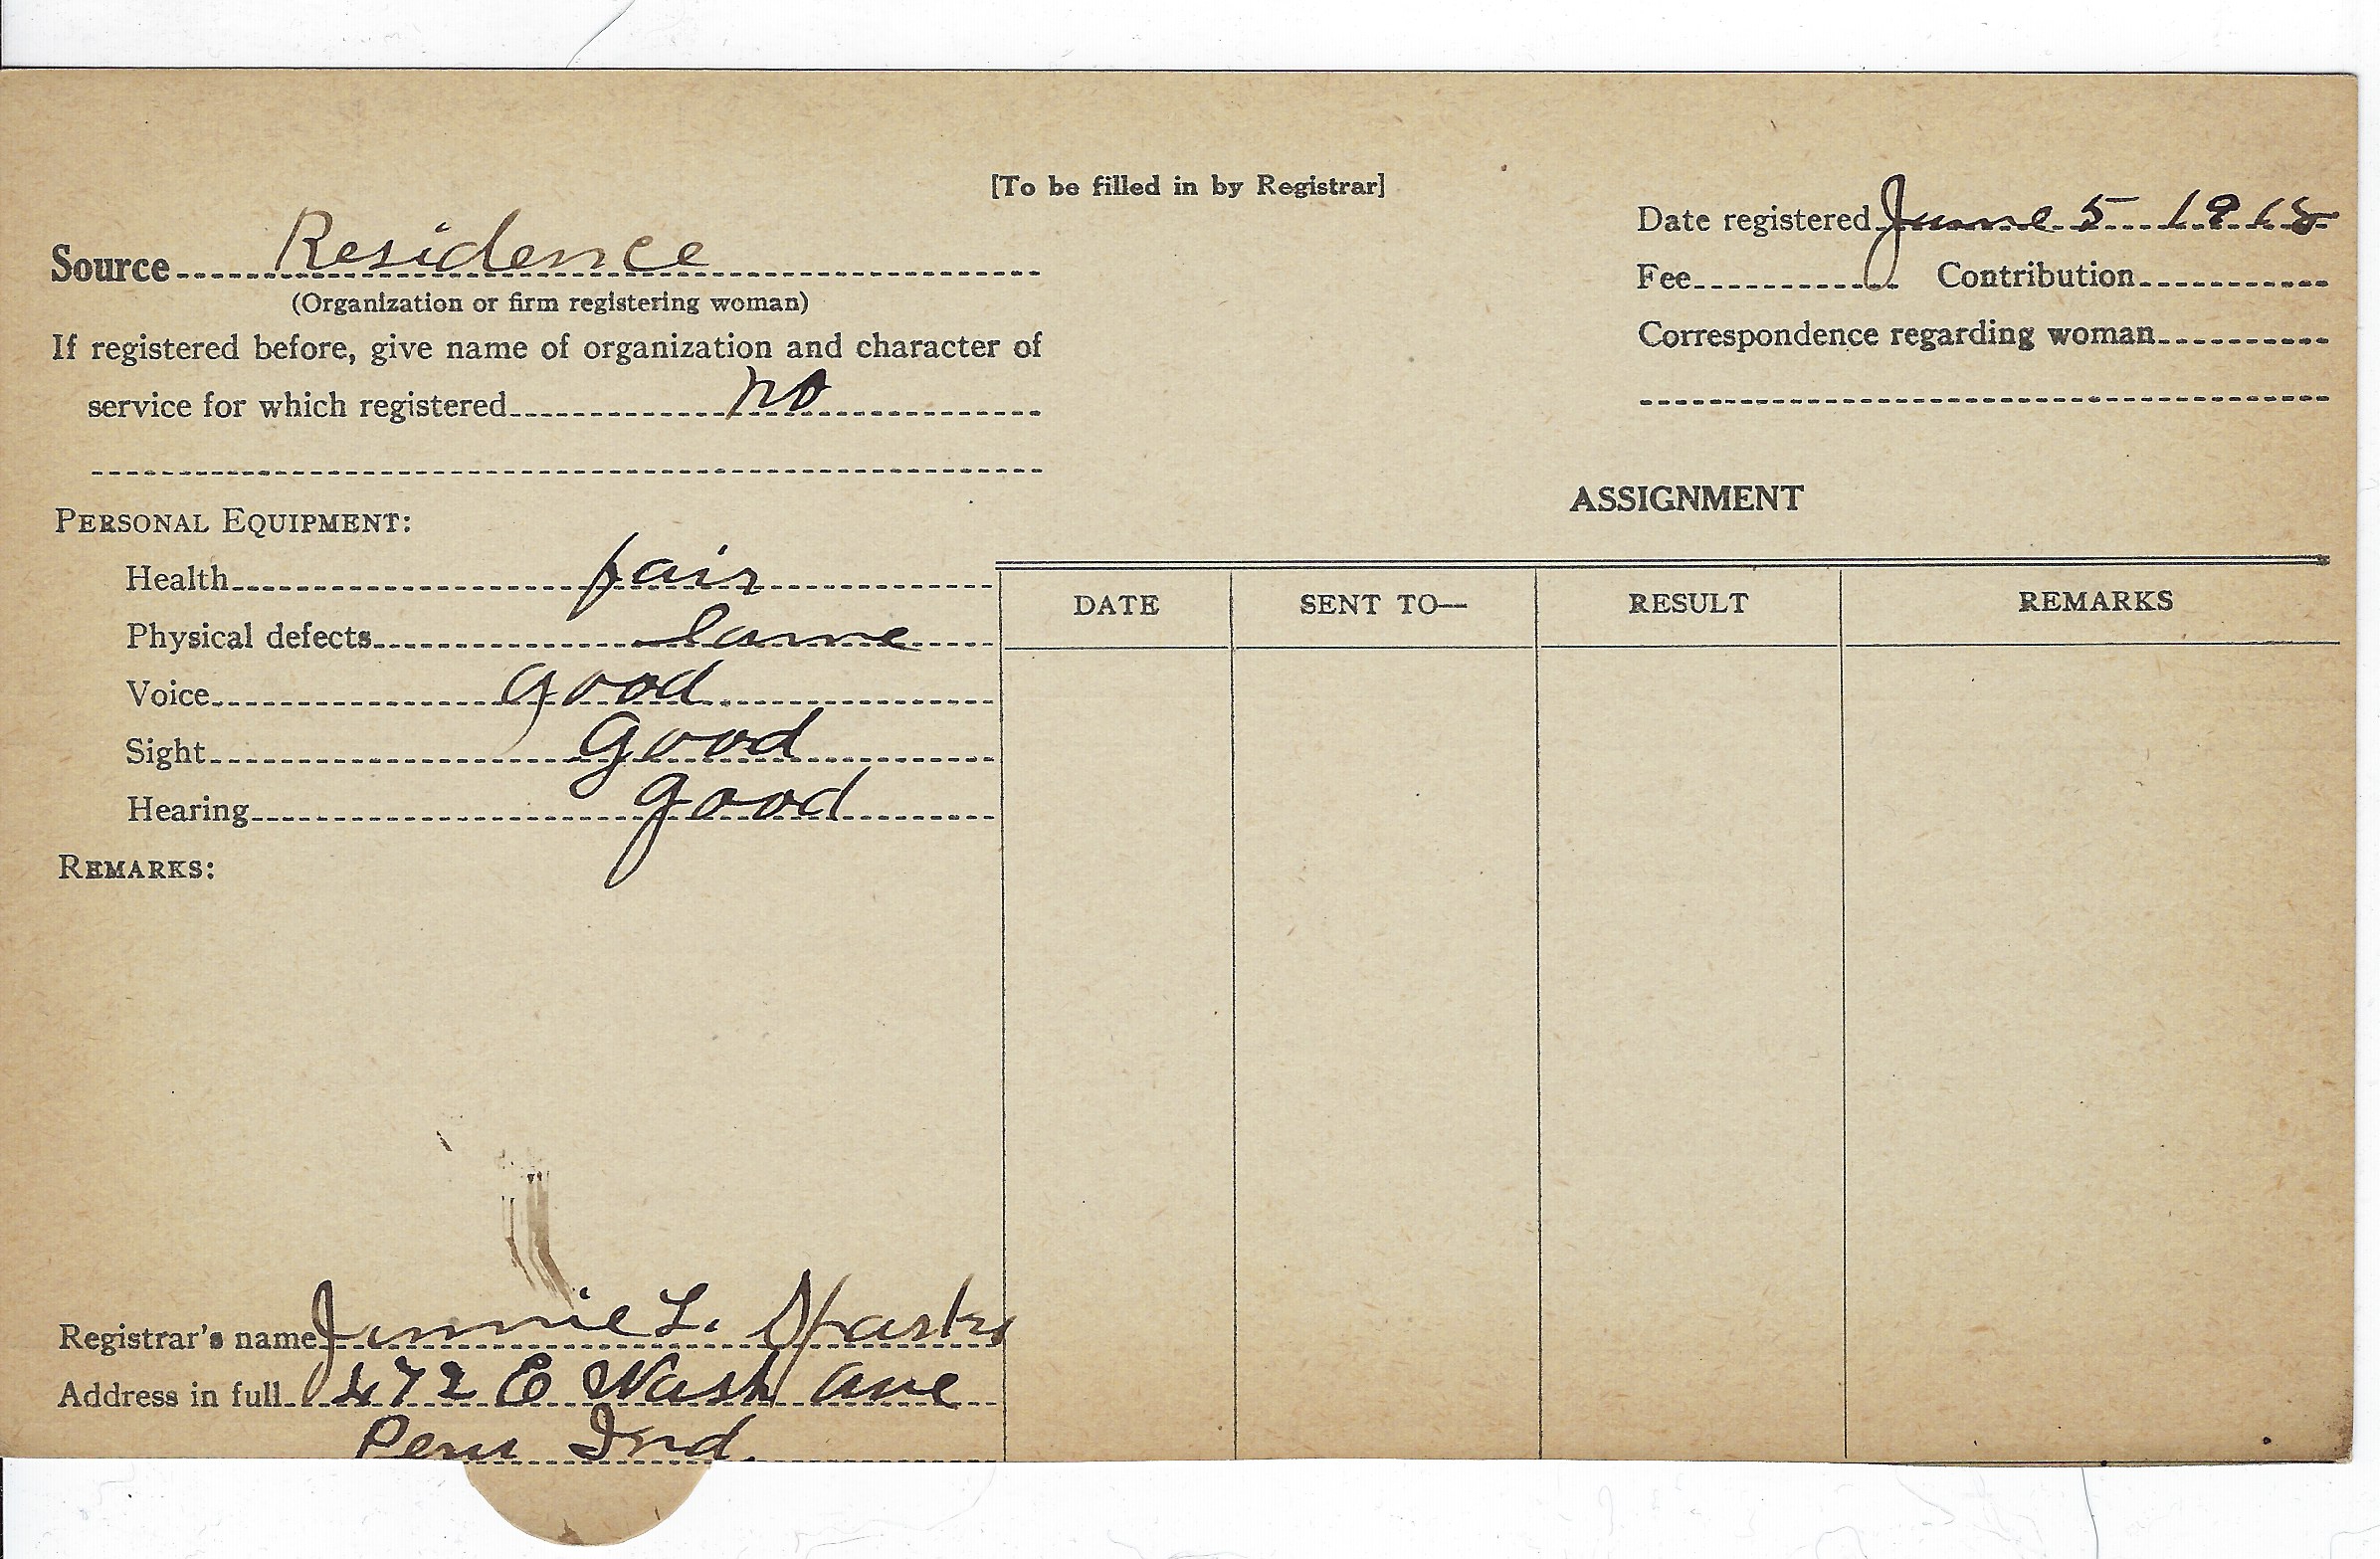 [To be filled in by Registrar]
Date registered June 5 1918
Source Residence
Fee Contribution
(Organization or firm registering woman)
Correspondence regarding woman
If registered before, give name of organization and character of
service for which registered no
PERSONAL EQUIPMENT:
Health fair
Physical defects lame
Voice good
Sight good
Hearing good
REMARKS:
Registrar's name Jennie L. Sparks
Address in full 472 E Wash Ave
Peru Ind.
ASSIGNMENT
DATE SENT TO— RESULT REMARKS